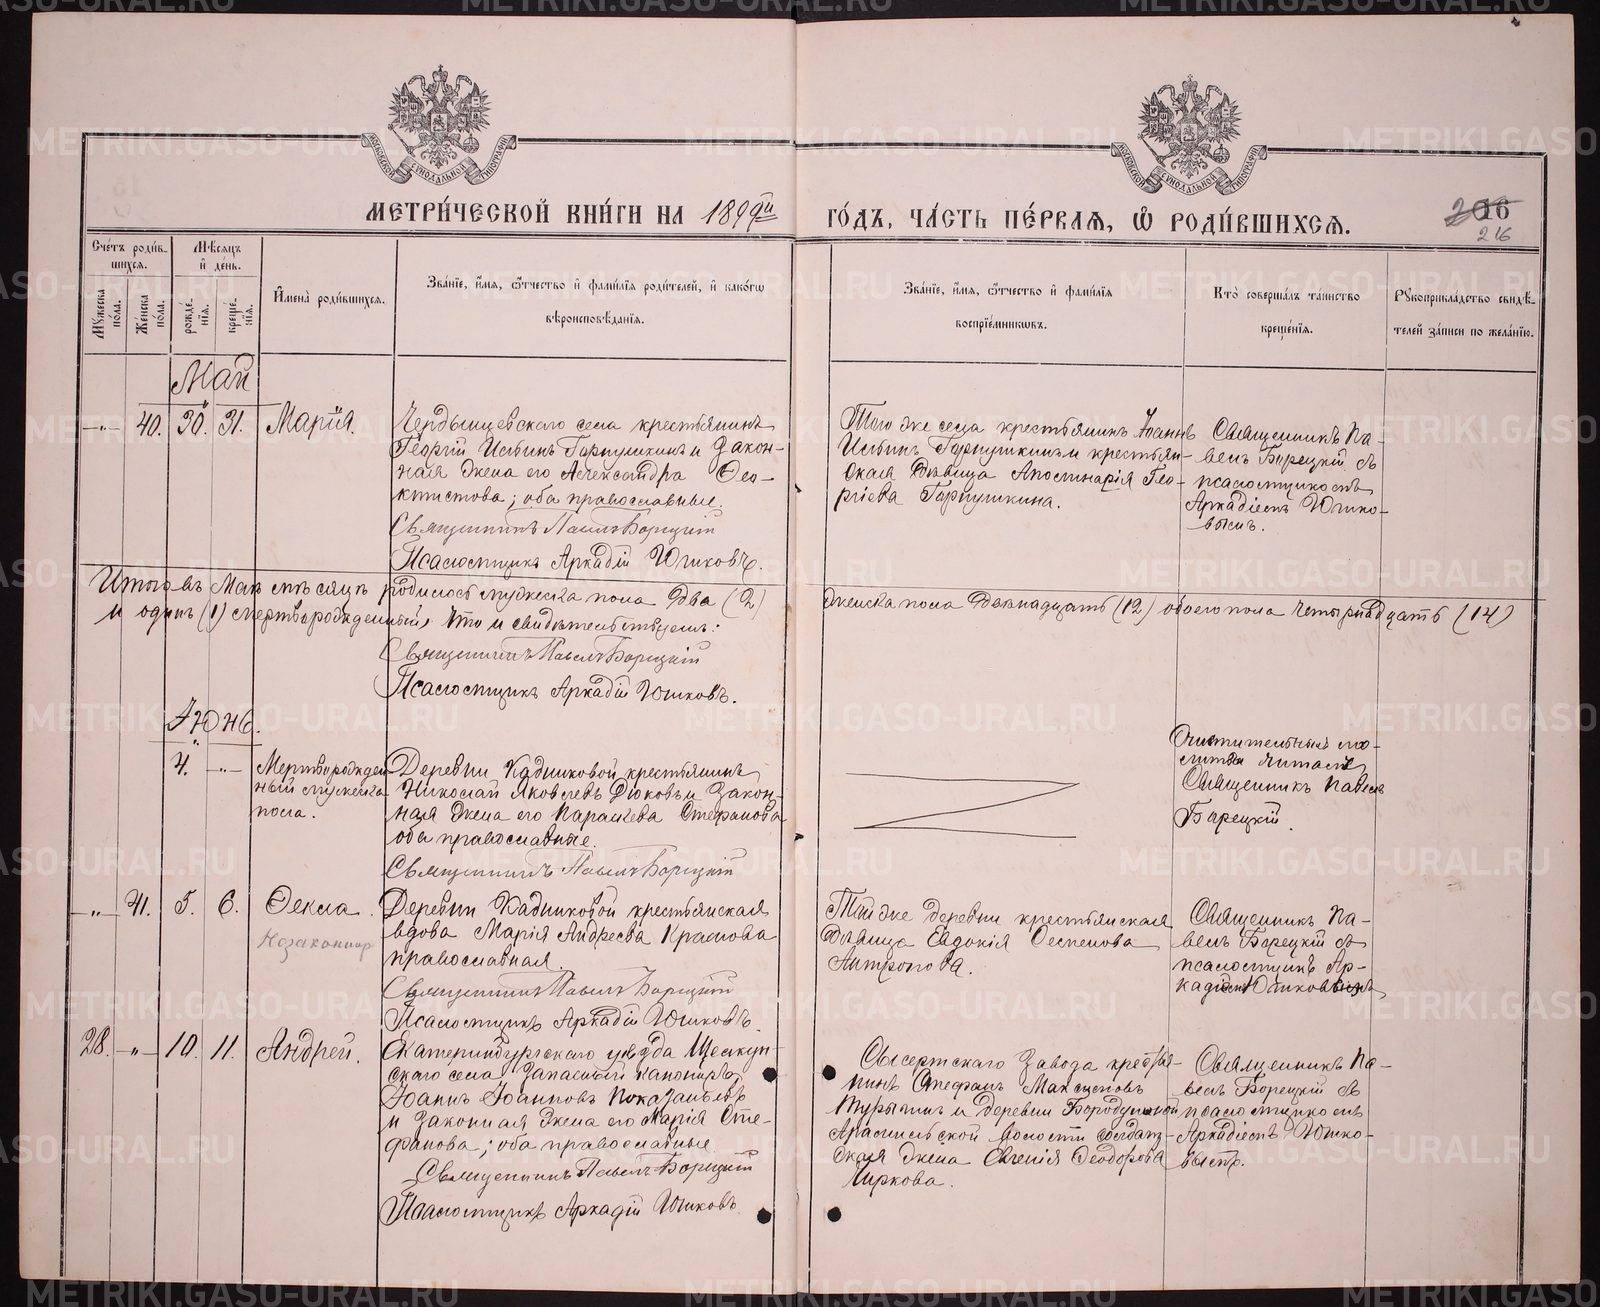 МЕТРИ́ЧЕСКОЙ КНИ́ГИ НА 1899й ГО́ДЪ, ЧА́СТЬ ПЕ́РВАЯ, Ѡ РОДИ́ВШИХСЯ.
216
Сче́тъ роди́в-
шихся.
Му́жеска по́ла.
Же́нска по́ла.
Мѣ́сяцъ
и̂ де́нь.
рожде́-
нїя.
креще́-
нїя.
И̂мена̀ роди́вшихся.
Зва́нїе, и́мя, ѻ́тчество и̂ фами́лїя роди́телей, и̂ како́гѡ
вѣроисповѣ́данїя.
Зва́нїе, и́мя, ѻ́тчество и̂ фами́лїя
воспрїе́мниковъ.
Кто̀ соверша́лъ та́инство
креще́нїя.
Рꙋкоприкла́дство свидѣ́-
телей за́писи по жела́нїю.
Май
-"- 40. 30. 31. Марія.
села крестьянинъ
Георгій Ильинъ Гарпушкинъ и закон-
ная жена его Александра Ѳео-
ктистова; оба православные.
Священникъ Павелъ Борецкій
Псаломщикъ Аркадій Юшковъ.
Того же села крестьянинъ Іоаннъ
Ильинъ Гарпушкинъ и крестьян-
ская дѣвица Аполинарія Гео-
ргіева Гарпушкина.
Священникъ Па-
велъ Борецкій съ
псаломщикомъ
Аркадіемъ Юшко-
вымъ.
Итого въ Маѣ мѣсяцѣ родилось мужеска пола два (2) женска пола двѣнадцать (12) обоего пола четырнадцать (14)
и одинъ (1) мертворожденный, что и свидѣтельствуемъ:
Священникъ Павелъ Борецкій
Псаломщикъ Аркадій Юшковъ.
Іюнь.
" 4. -"- Мертворожден-
ный мужеска
пола.
Деревни Кадниковой крестьянинъ
Николай Яковлевъ Дюковъ и закон-
ная жена его Параскева Стефанова
оба православные.
Священникъ Павелъ Борецкій
Очистительныя мо-
литвы читалъ
Священникъ Павелъ
Борецкій.
-"- 41. 5. 6. Ѳекла.
Незаконнор
Деревни Кадниковой крестьянская
вдова Марія Андреева Краснова
православная.
Священникъ Павелъ Борецкій
Псаломщикъ Аркадій Юшковъ.
Той же деревни крестьянская
дѣвица Евдокія
Антропова.
Священникъ Па-
велъ Борецкій съ
псаломщикъ Ар-
кадіемъ Юшковымъ
28. -"- 10. 11. Андрей.
Екатеринбургскаго уѣзда Щелкун-
скаго села запасный канониръ
Іоаннъ Іоанновъ Показаньевъ
и законная жена его Марія Сте-
фанова; оба православные
Священникъ Павелъ Борецкій
Псаломщикъ Аркадій Юшковъ.
Сысертскаго завода крестья-
нинъ Стефанъ Максимовъ
и деревни Бородулиной
Арамильской волости солдат-
ская жена Евгенія Ѳеодорова
Чиркова.
Священникъ Па-
велъ Борецкій съ
псаломщикомъ
Аркадіемъ Юшко-
вымъ.